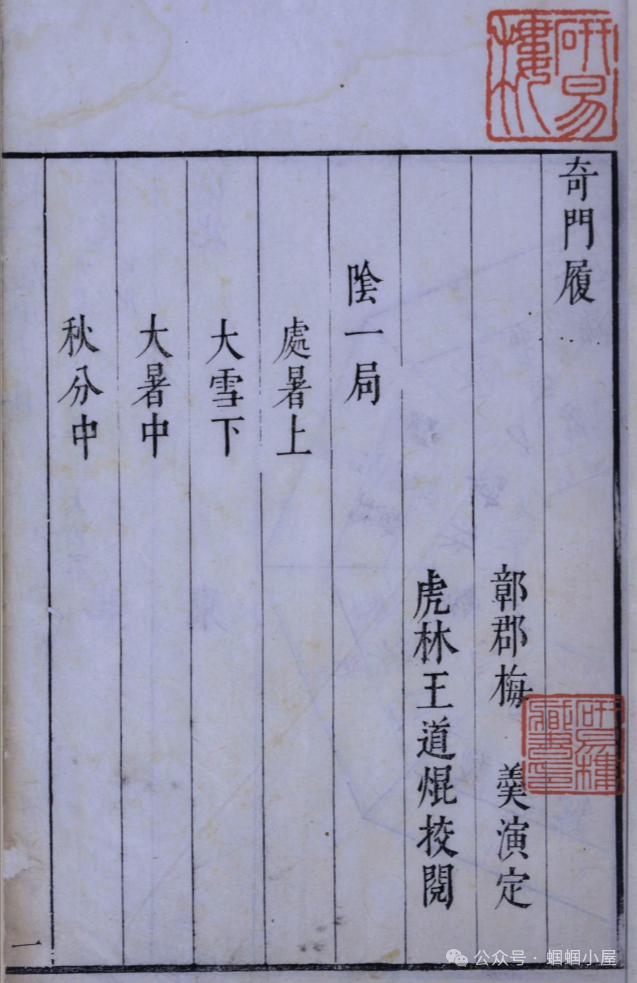 奇門履
鄣郡梅 羮演定
虎林王道焜挍閱
陰一局
處暑上
大雪下
大暑中
秋分中
一
研易樓
公众号 · 蝈蝈小屋